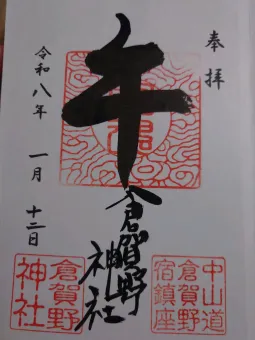 奉拝
午
倉賀野神社
令和八年 一月 十二日
中山道
倉賀野
宿鎮座
倉賀野
神社